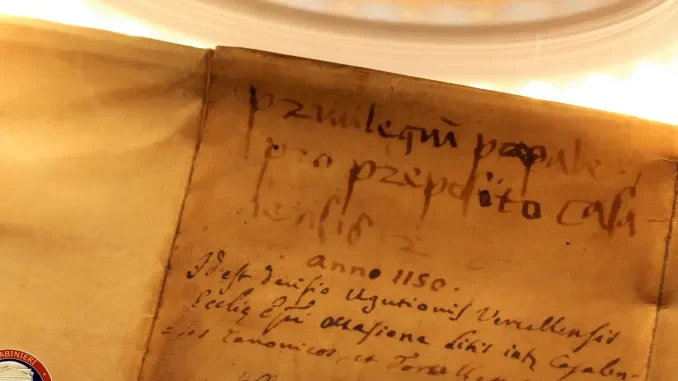 privilegiū papale
pro preposito Casa-
lensis
anno 1150.
Idest decisio Ugutionis Vercellensis
Ecclię Epi occasione litis intr Casalen-
-ses Canonicos, et
ABINIERI